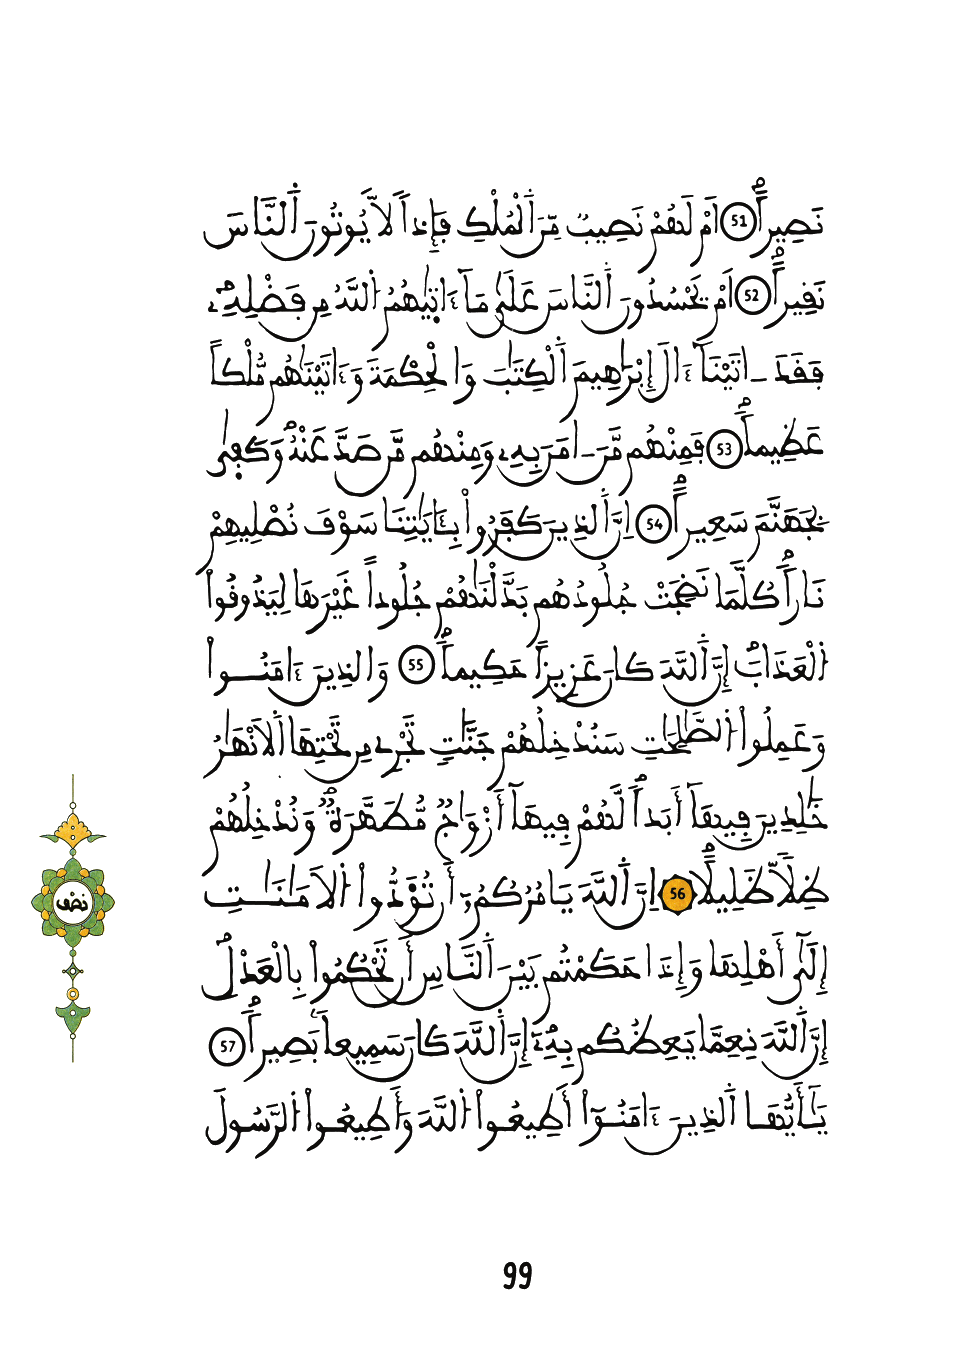 نَصِيراً 51 اَمْ لَهُمْ نَصِيبٌ مِّنَ اَلْمُلْكِ فَإِذاً لَّا يُوتُونَ اَلنَّاسَ
نَقِيراً 52 اَمْ يَحْسُدُونَ اَلنَّاسَ عَلَىٰ مَآ ءَاتٜيٰهُمُ اُللَّهُ مِن فَضْلِهِۦ
فَقَدَ ـ اتَيْنَآ ءَالَ إِبْرَٰهِيمَ اَلْكِتَٰبَ وَالْحِكْمَةَ وَءَاتَيْنَٰهُم مُّلْكاً
عَظِيماً 53 فَمِنْهُم مَّنَ ـ اٰمَنَ بِهِۦ وَمِنْهُم مَّن صَدَّ عَنْهُ وَكَفٜيٰ
بِجَهَنَّمَ سَعِيراً 54 اِنَّ اَلذِينَ كَفَرُواْ بِـَٔايَٰتِنَا سَوْفَ نُصْلِيهِمْ
نَاراً كُلَّمَا نَضِجَتْ جُلُودُهُم بَدَّلْنَٰهُمْ جُلُوداً غَيْرَهَا لِيَذُوقُواْ
اُلْعَذَابَ إِنَّ اَللَّهَ كَانَ عَزِيزاً حَكِيماً 55 وَالذِينَ ءَامَنُواْ
وَعَمِلُواْ اُلصَّٰلِحَٰتِ سَنُدْخِلُهُمْ جَنَّٰتٍ تَجْرِے مِن تَحْتِهَا اَلَانْهَٰرُ
خَٰلِدِينَ فِيهَآ أَبَداً لَّهُمْ فِيهَآ أَزْوَٰجٌ مُّطَهَّرَةٌ وَنُدْخِلُهُمْ
ظِلّاً ظَلِيلاً 56 اِنَّ اَللَّهَ يَامُرُكُمُۥٓ أَن تُؤَدُّواْ اُلَامَٰنَٰتِ
إِلَىٰٓ أَهْلِهَا وَإِذَا حَكَمْتُم بَيْنَ اَلنَّاسِ أَن تَحْكُمُواْ بِالْعَدْلِ
إِنَّ اَللَّهَ نِعِمَّا يَعِظُكُم بِهِۦٓ إِنَّ اَللَّهَ كَانَ سَمِيعاً بَصِيراً 57
يَٰٓأَيُّهَا اَلذِينَ ءَامَنُوٓاْ أَطِيعُواْ اُللَّهَ وَأَطِيعُواْ اُلرَّسُولَ
نصف
99